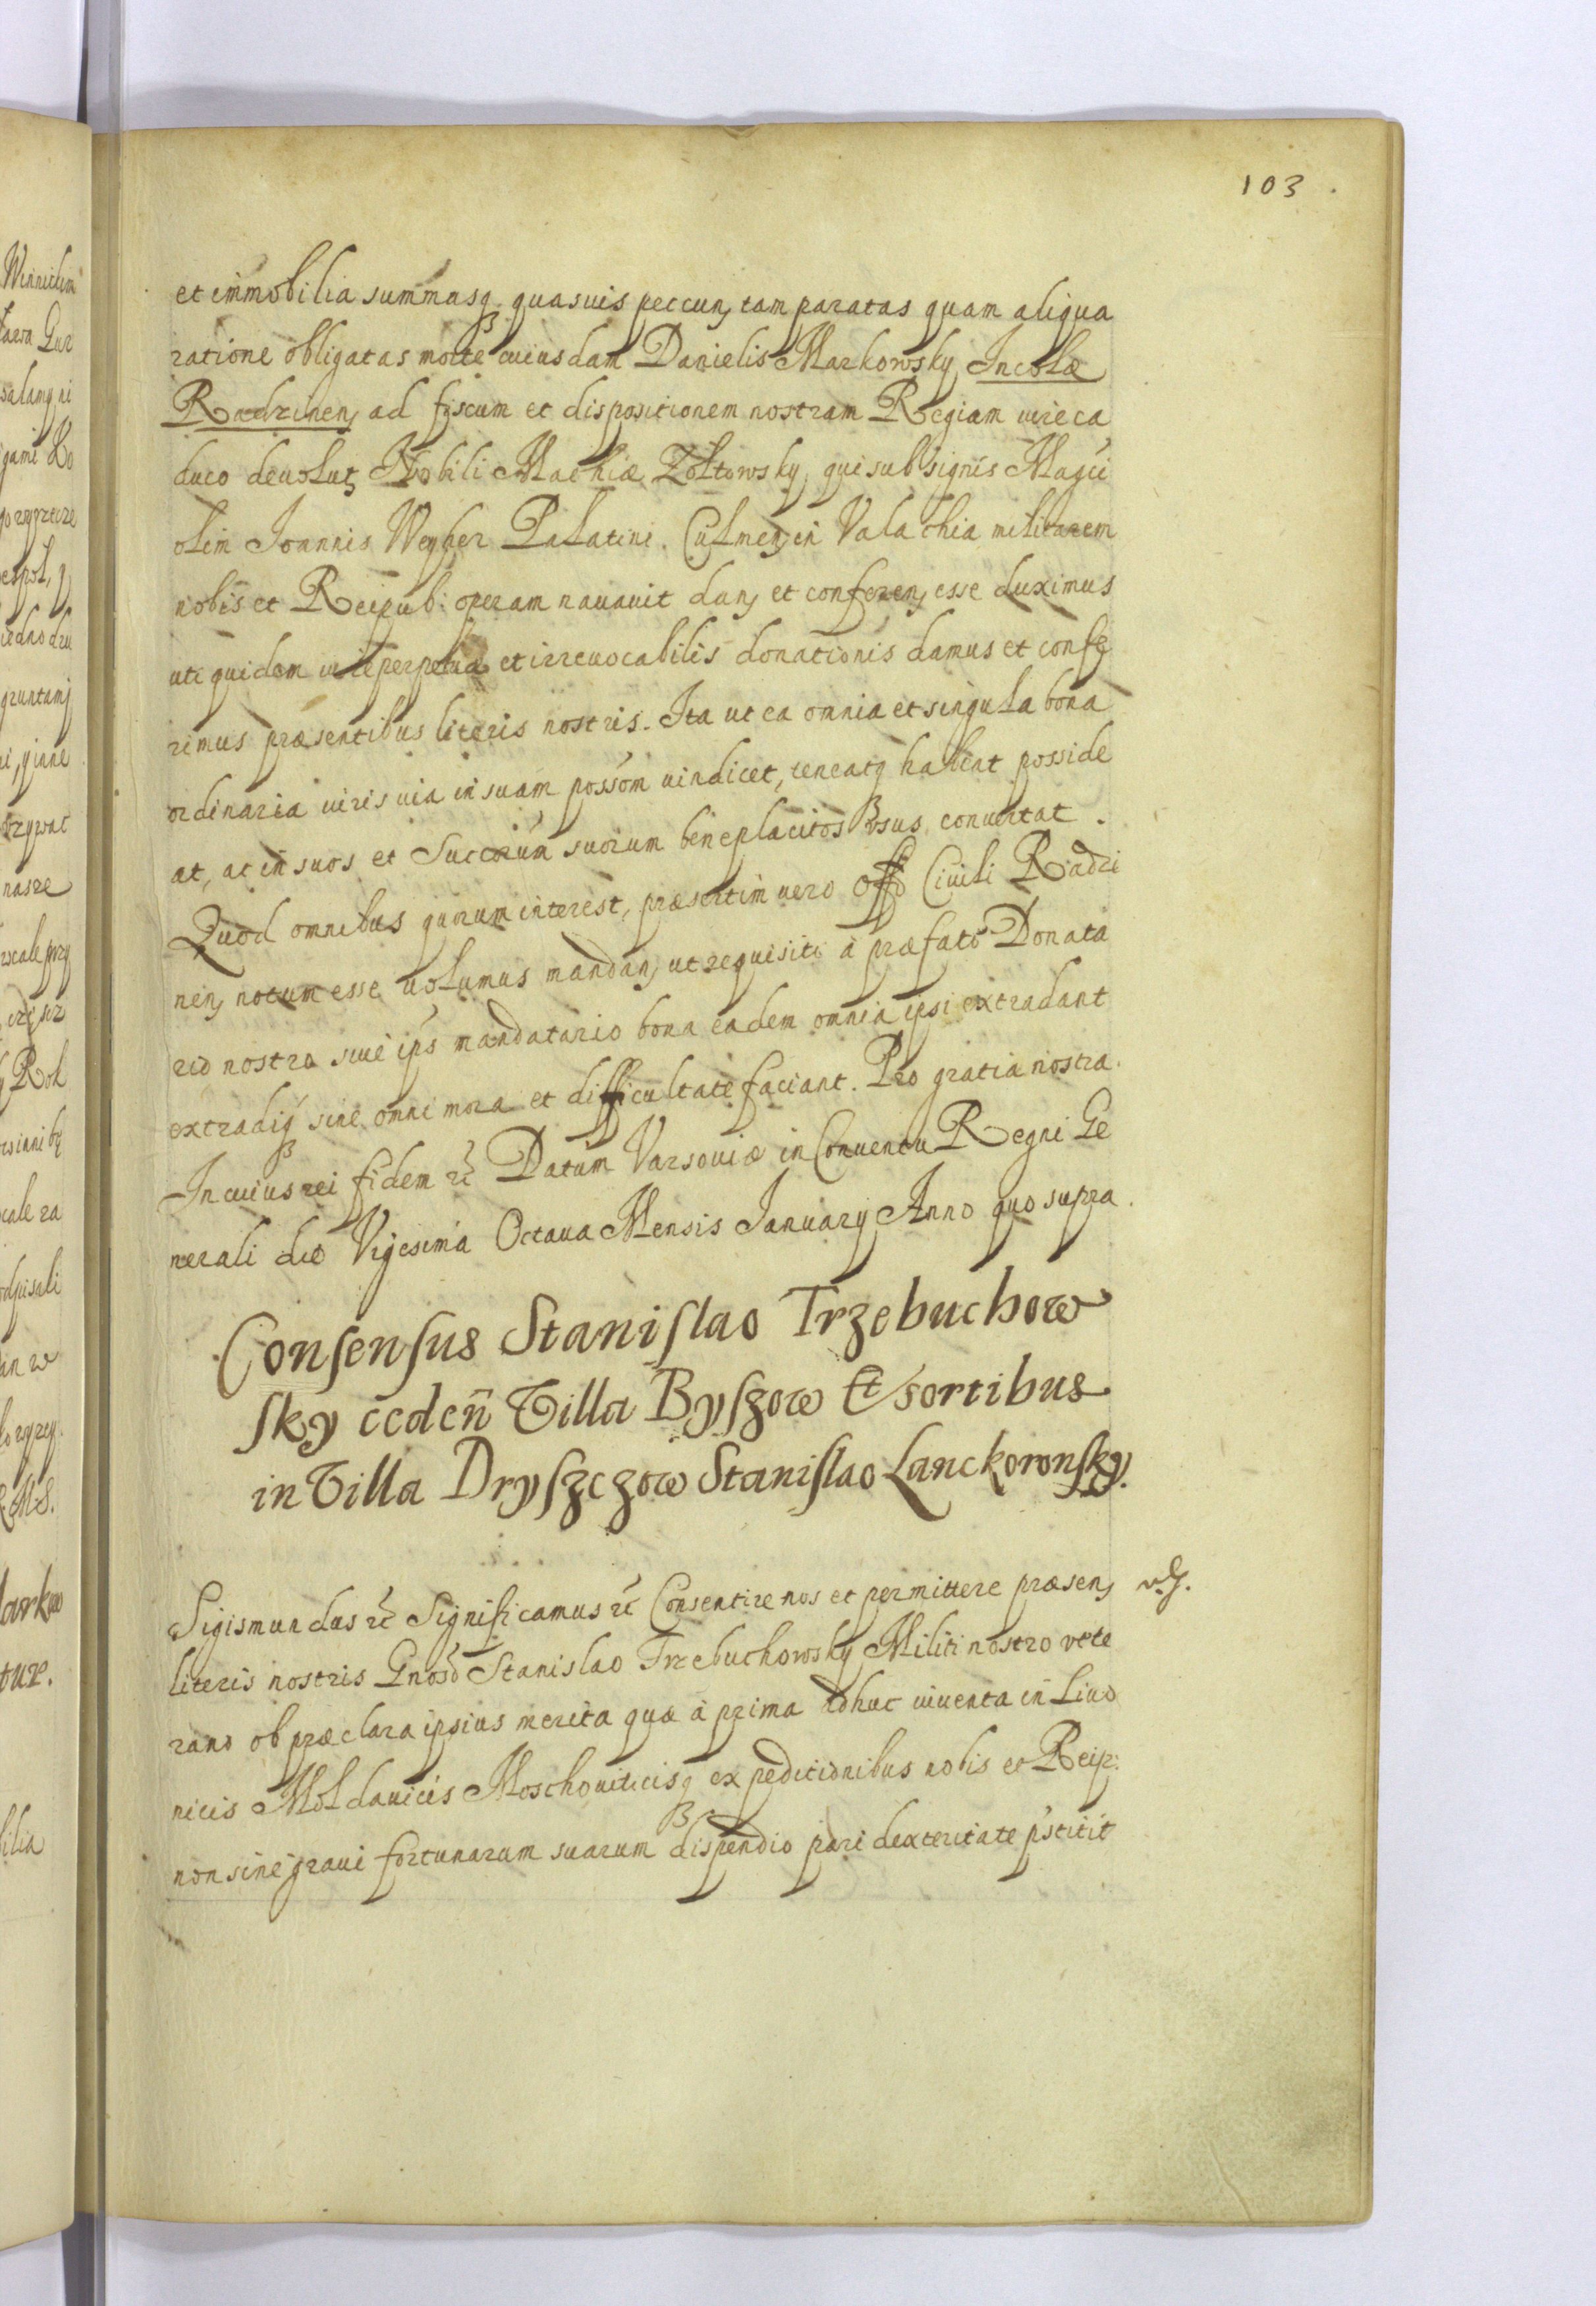 103
et immobilia summasq. quasuis peccun, tam paratas quam aliqua
ratione obligatas morte cuiusdam Danielis Markowsky Incolæ
Radzinen, ad fiscum et dispositionem nostram Regiam iure ca
duco deuolut, Nobili Mathiæ Zołtowsky, qui sub signis Magci
olim Ioannis Weyher Palatini. Culmen, in Valachia militarem
nobis et Reipub: operam nauauit dan, et conferen, esse duximus
uti quidem iure perpetuæ et irreuocabilis donationis damus et confe
rimus præsentibus literis nostris. Ita ut ea omnia et singula bona
ordinaria iuris uia in suam possom uindicet, teneatq habeat posside
at, ac in suos et Succorum suorum beneplacitos usus conuertat.
Quod omnibus quorum interest, præsertim uero Offo Ciuili Radzi
nen, notum esse uolumus mandan, ut requisiti à præfato Donata
rio nostro siue ips mandatario bona eadem omnia ipsi extradant
extradiq sine omni mora et difficultate faciant. Pro gratia nostra.
In cuius rei fidem rc Datum Varsouiæ in Conuentu Regni Ge
nerali die Vigesima Octaua Mensis Ianuary Anno quo supra.
Consensus Stanislao Trzebuchow
sky ceden̄ Villa Byszow Et sortibus
in Villa Dryszczow Stanislao Lanckoronsky.
Sigismundus rc Significamus rc Consentire nos et permittere præsen,
literis nostris Gnoso Stanislao Trzebuchowsky Militi nostro vete
rano ob præclara ipsius merita quæ à prima adhuc iuuenta in Liuo
nicis Moldauicis Moschouiticisq expeditionibus nobis et Reip:
non sine graui fortunarum suarum dispendio pari dexteritate pstitit